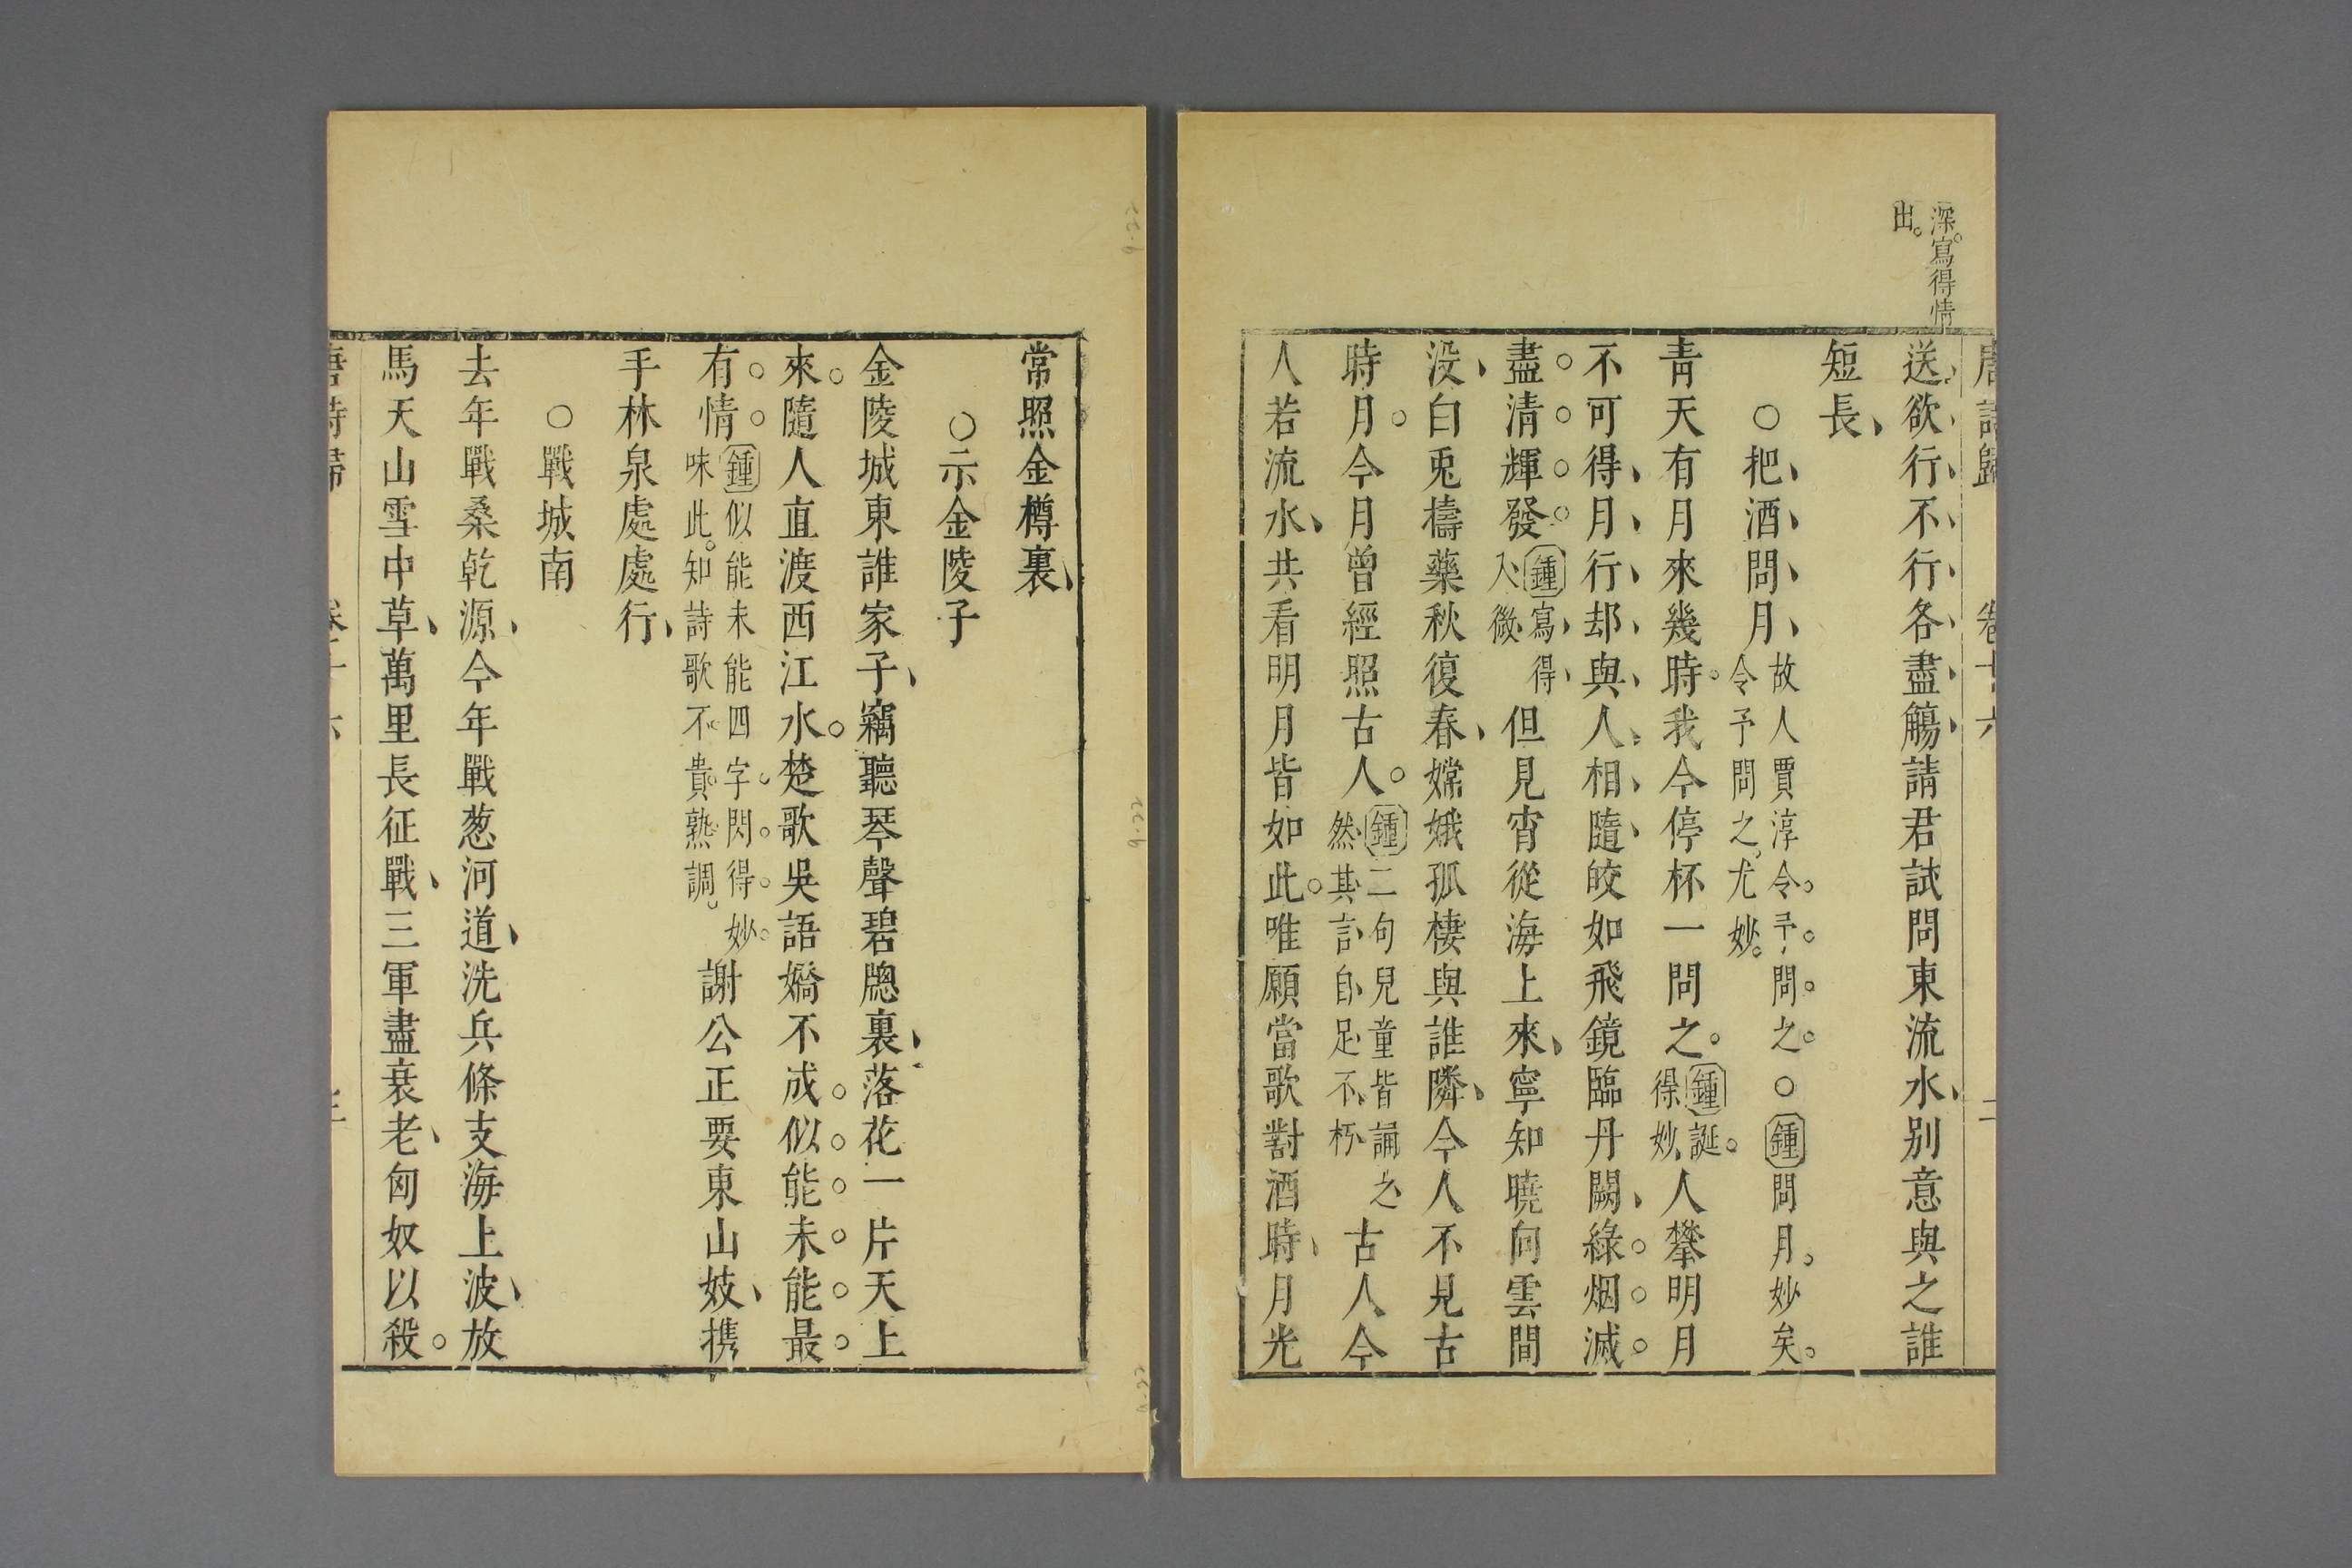 深寫得情
出
唐詩歸 卷十六 二
送欲行不行各盡觴請君試問東流水別意與之誰
短長
○把酒問月故人賈淳令予問之○鍾問月妙矣
令予問之尤妙
青天有月來幾時我今停杯一問之鍾誕得妙人攀明月
不可得月行却與人相隨皎如飛鏡臨丹闕綠烟滅
盡清輝發鍾寫得入微但見宵從海上來寧知曉向雲間
没白兎擣藥秋復春嫦娥孤棲與誰隣今人不見古
時月今月曾經照古人鍾二句兒童皆誦之然其言自足不朽古人今
人若流水共看明月皆如此唯願當歌對酒時月光
常照金樽裏
○示金陵子
金陵城東誰家子竊聽琴聲碧牕裏落花一片天上
來隨人直渡西江水楚歌吳語嬌不成似能未能最
有情鍾似能未能四字閃得妙味此知詩歌不貴熟調謝公正要東山妓携
手林泉處處行
○戰城南
去年戰桑乾源今年戰葱河道洗兵條支海上波放
馬天山雪中草萬里長征戰三軍盡衰老匈奴以殺
唐詩歸 卷十六 三